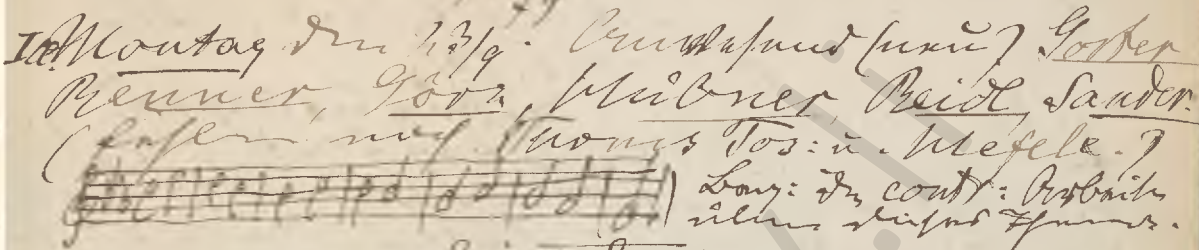 Ia. Montag den 23/9. Anwesend (neu) Goster
Renner, Görz, Hübner, Reidl, Sander.
(fehlen noch Thomas Jos: u. Mefele.)
Beg: der contr: Arbeiten
über dieses Thema.